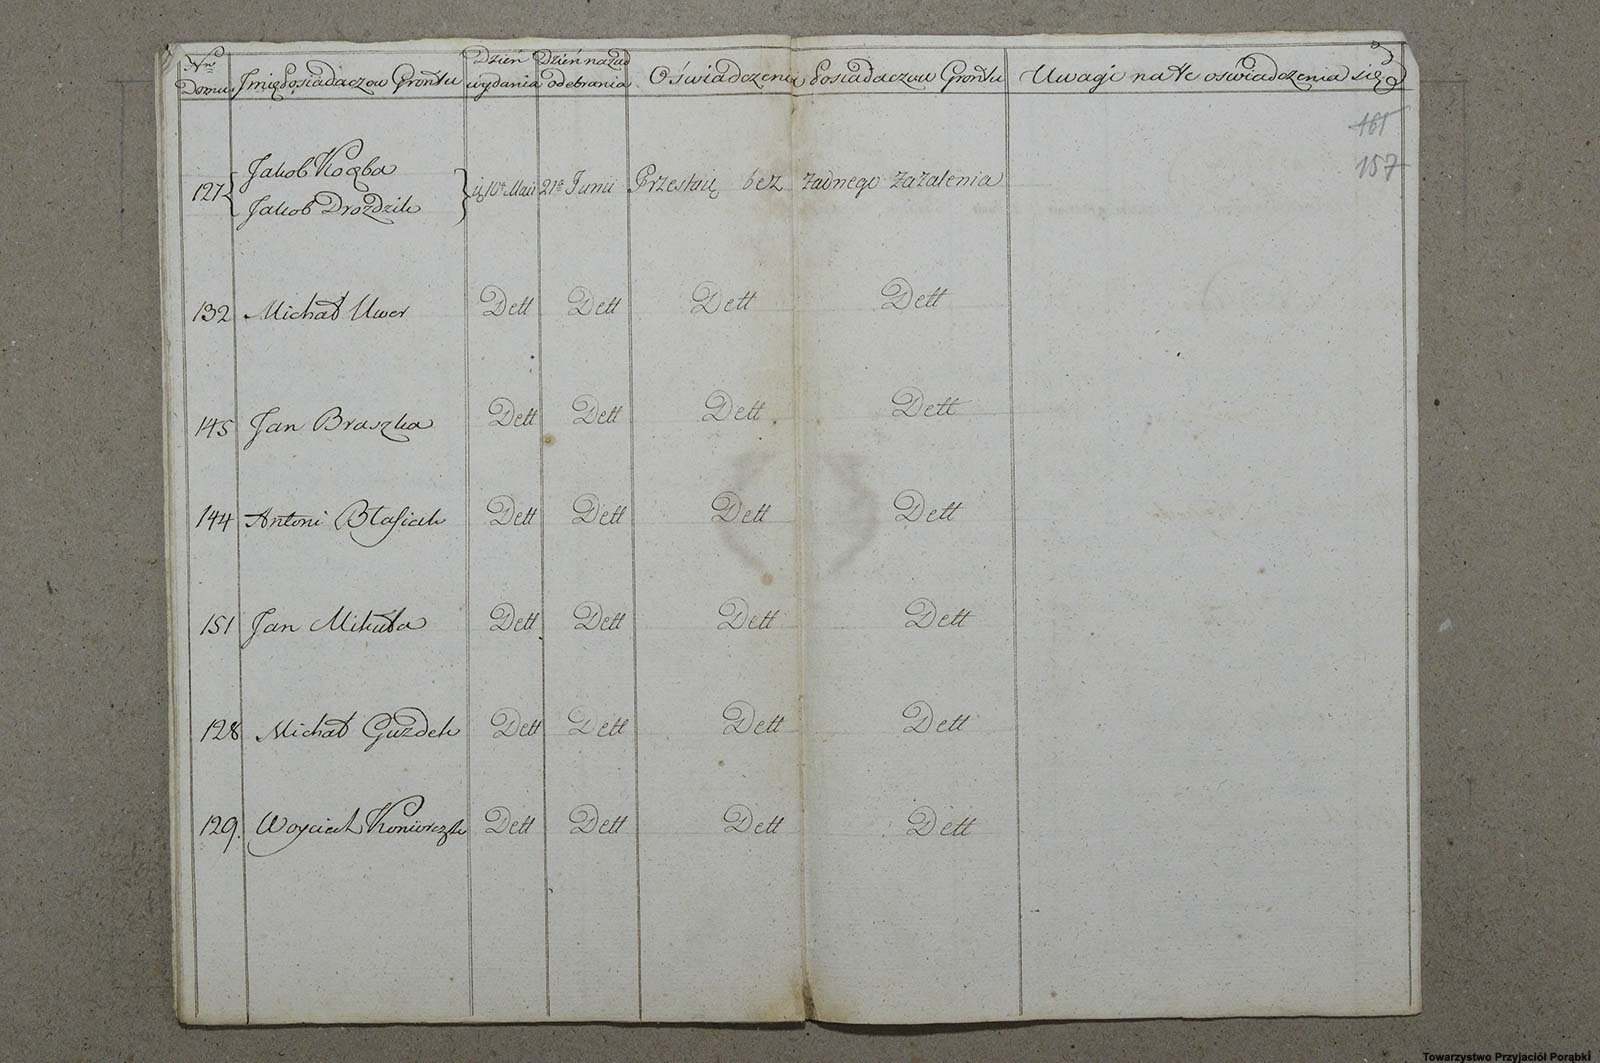 Nro Domu Imię Posiadaczow Grontu Dzień wydania Dzień nazad odebrania Oświadczenia Posiadaczow Grontu Uwagi na te oswiadczenia się
161
157
127 Jakob Koczba 10a Maii 21a Junii Przestaię bez żadnego zażalenia
Jakob Drozdzik
132 Michał Uwer Dett Dett Dett Dett
145 Jan Braszka Dett Dett Dett Dett
144 Antoni Błasiak Dett Dett Dett Dett
151 Jan Mikuła Dett Dett Dett Dett
128 Michał Guzdek Dett Dett Dett Dett
129. Woyciech Koniorczyk Dett Dett Dett Dett
Towarzystwo Przyjaciół Porąbki